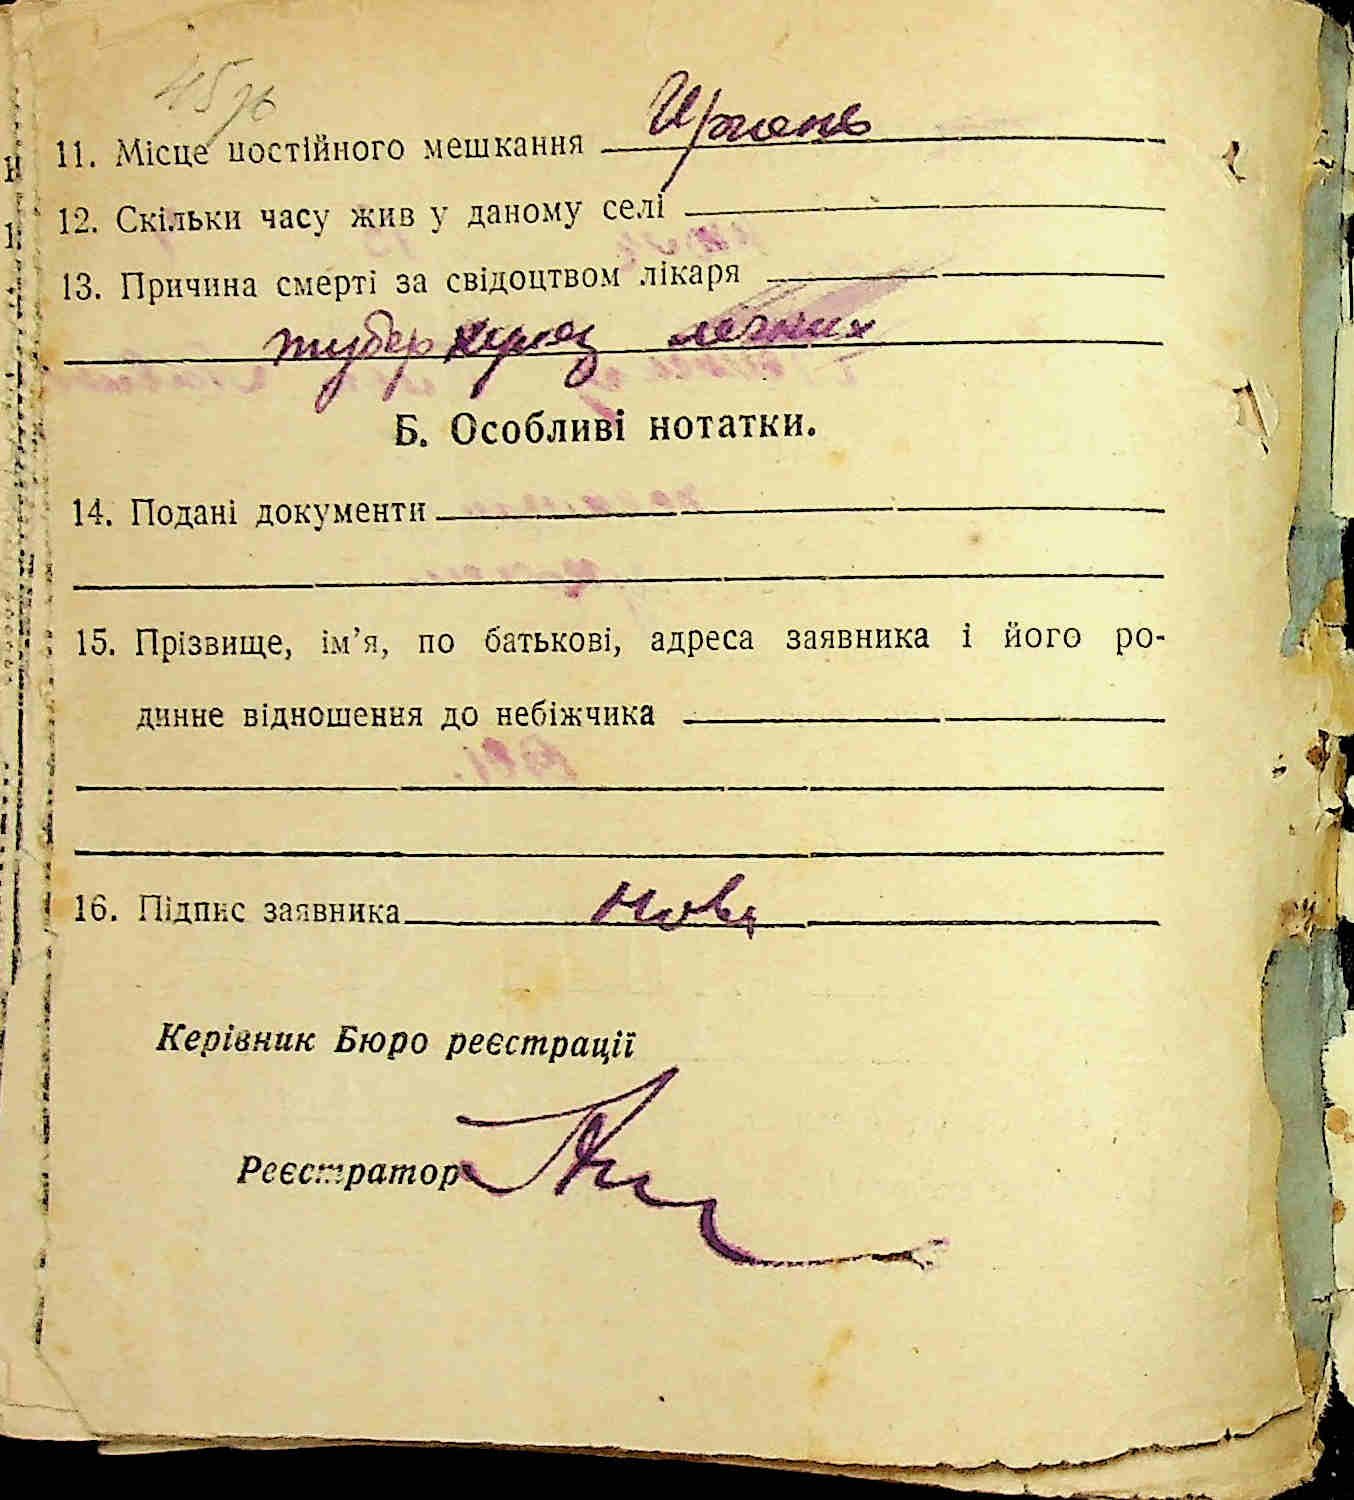 11. Місце постійного мешкання Ирпень
12. Скільки часу жив у даному селі
13. Причина смерті за свідоцтвом лікаря
туберкулез легких
Б. Особливі нотатки.
14. Подані документи
15. Прізвище, ім’я, по батькові, адреса заявника і його ро-
динне відношення до небіжчика
16. Підпис заявника
Керівник Бюро реєстрації
Реєстратор